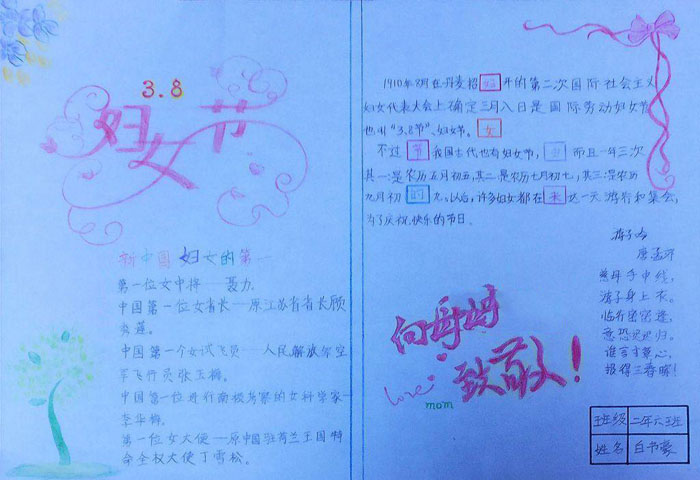 3.8
妇女节
新中国妇女的第一
第一位女中将——聂力.
中国第一位女省长—原江苏省省长顾
秀莲。
中国第一个女试飞员——人民解放军空
军飞行员张玉梅。
中国第一位进行南极考察的女科学家—
李华梅.
第一位女大使——原中国驻荷兰王国特
命全权大使丁雪松。
1910年8月在丹麦招 开的第二次国际社会主义
妇女代表大会上确定三月八日是国际劳动妇女节
也叫“3.8节”、妇女节。女
不过 节 我国古代也有妇女节, 而且一年三次
其一:是农历五月初五,其二:是农历七月初七,其三:是农历
九月初 的 九。以后,许多妇女都在 来 这一天游行和集会,
为了庆祝快乐的节日。
游子吟
唐孟郊
慈母手中线,
游子身上衣。
临行密密逢,
意恐迟迟归。
谁言寸草心,
报得三春晖!
向母妈
致敬!
love
mom
班级 二年六班
姓名 白书豪